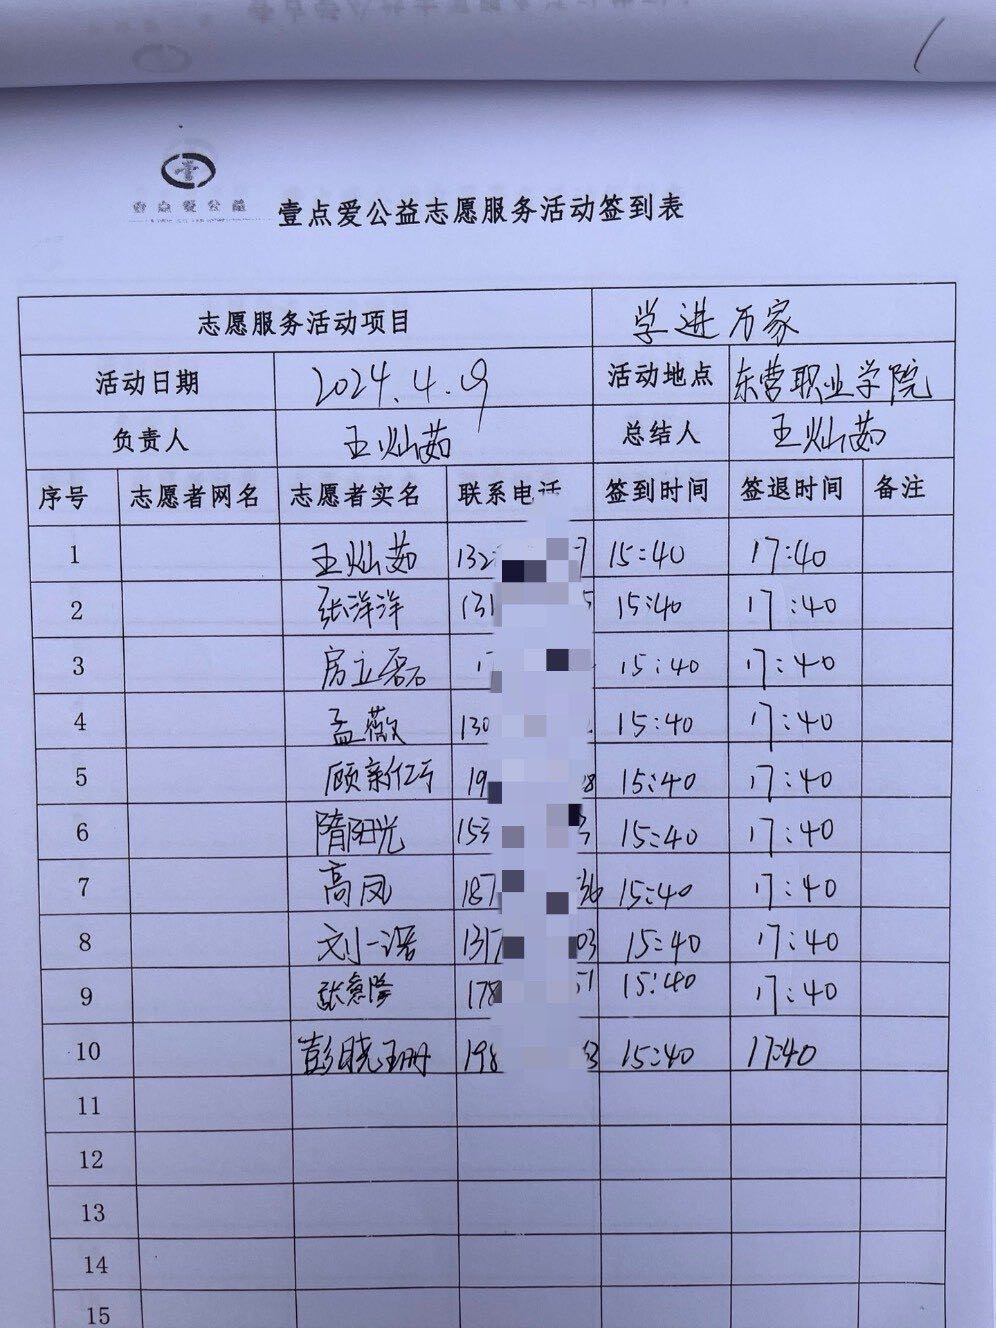 壹点爱公益
壹点爱公益志愿服务活动签到表
志愿服务活动项目 学进万家
活动日期 2024.4.9 活动地点 东营职业学院
负责人 王灿茹 总结人 王灿茹
序号 志愿者网名 志愿者实名 联系电话 签到时间 签退时间 备注
1 王灿茹 132 7 15:40 17:40
2 张洋洋 131 5 15:40 17:40
3 房立磊 1 15:40 17:40
4 孟薇 130 15:40 17:40
5 顾新仁 19 8 15:40 17:40
6 隋阳光 153 3 15:40 17:40
7 高凤 187 36 15:40 17:40
8 刘一诺 1317 03 15:40 17:40
9 张意隆 178 51 15:40 17:40
10 彭晓珊 198 3 15:40 17:40
11
12
13
14
15